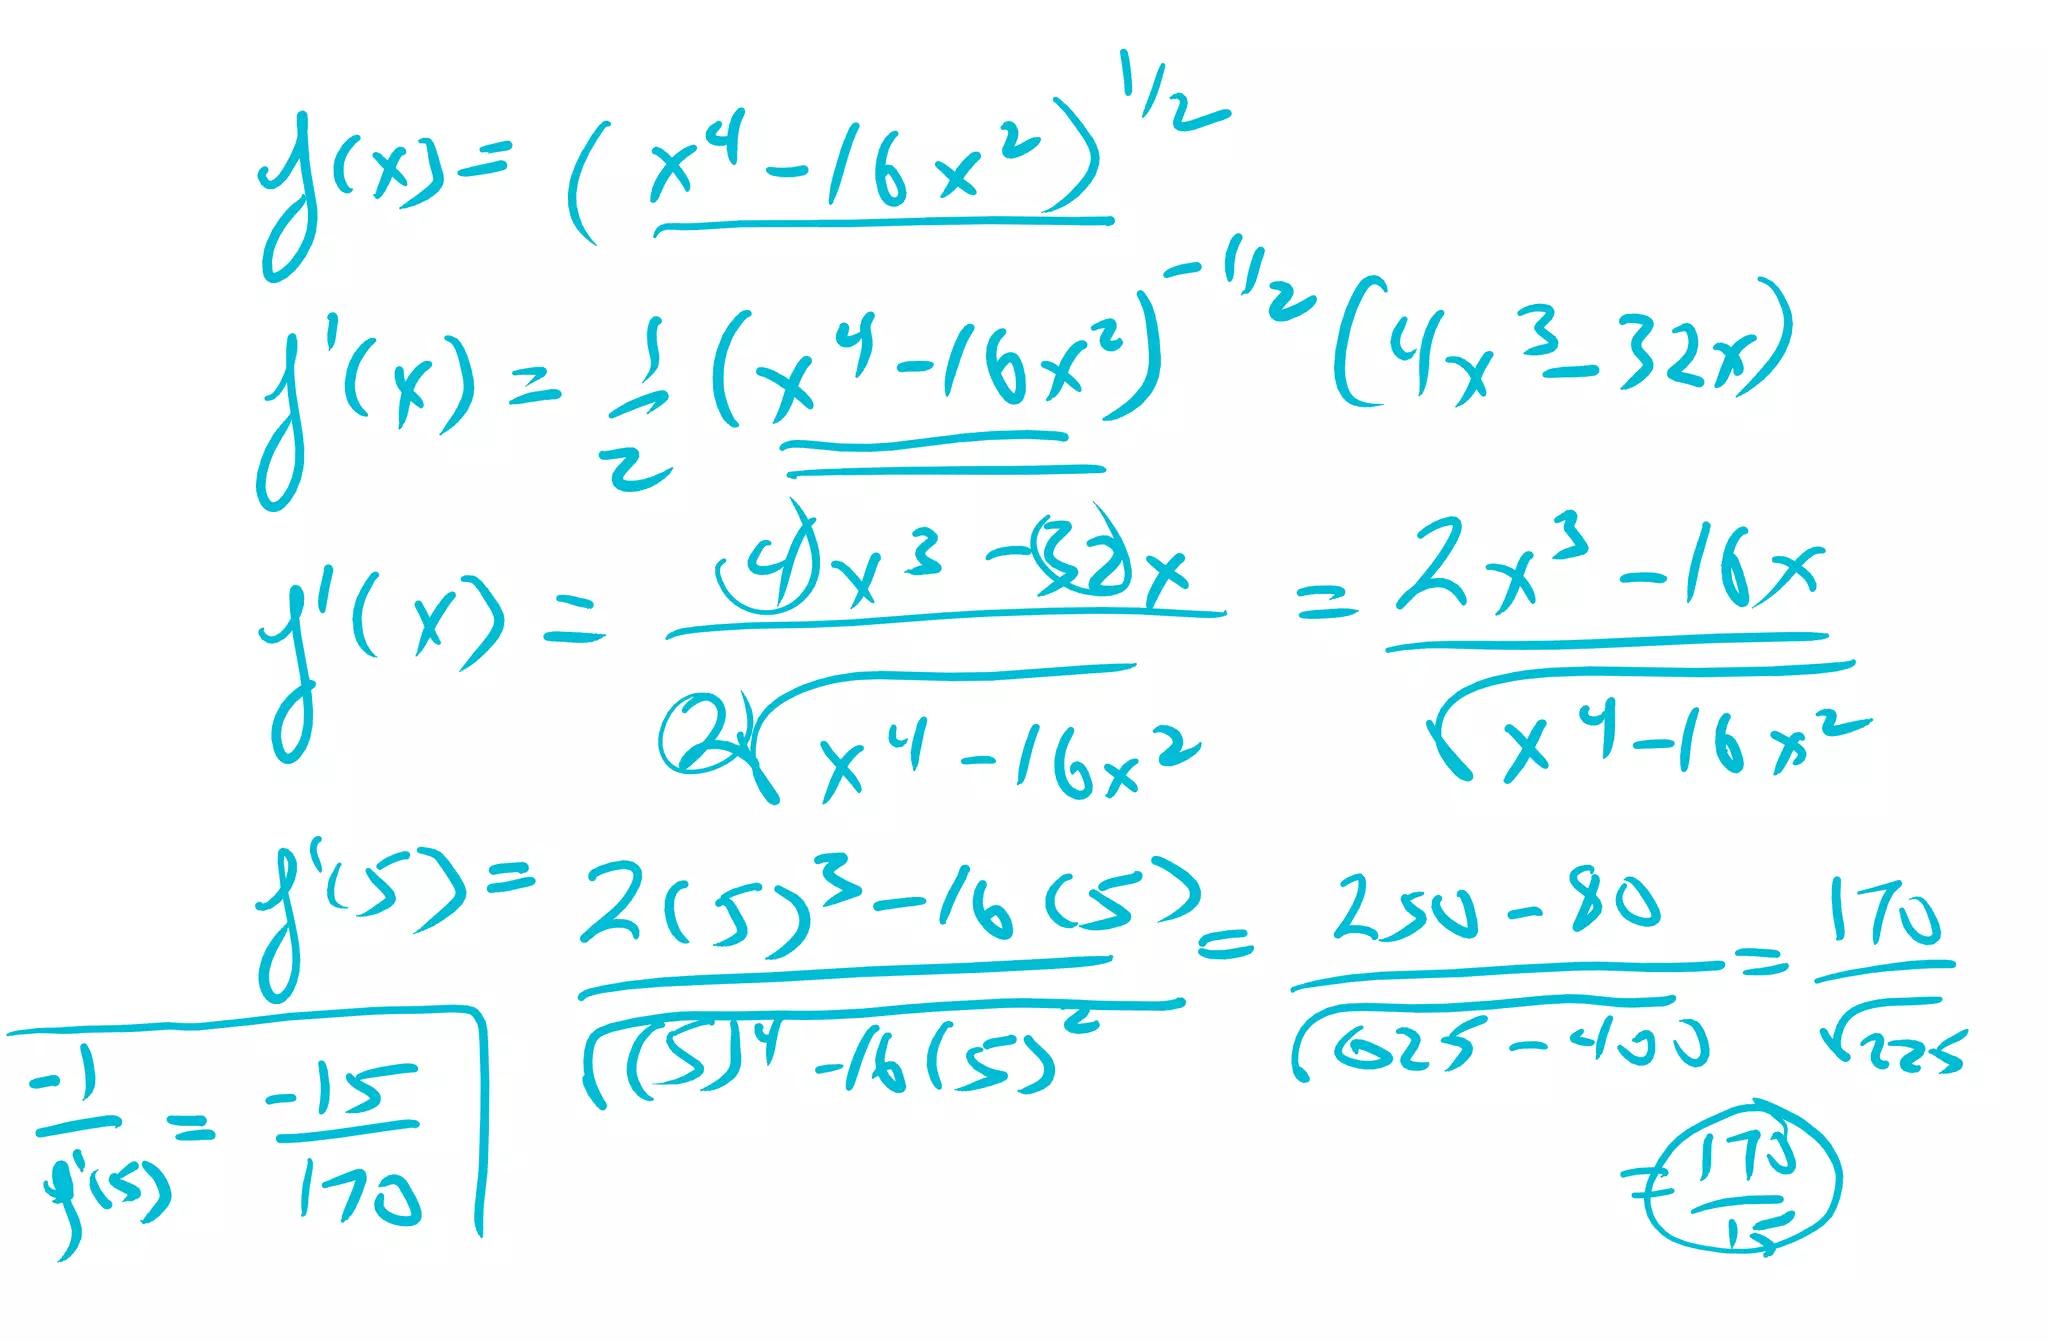 f(x) = (x⁴ - 16x²)^1/2
f'(x) = 1/2 (x⁴ - 16x²)^-1/2 (4x³ - 32x)
f'(x) = (4x³ - 32x)/(2√(x⁴ - 16x²)) = (2x³ - 16x)/√(x⁴ - 16x²)
f'(5) = (2(5)³ - 16(5))/√((5)⁴ - 16(5)²) = (250 - 80)/√(625 - 400) = 170/√225
= 170/15
-1/f'(5) = -15/170